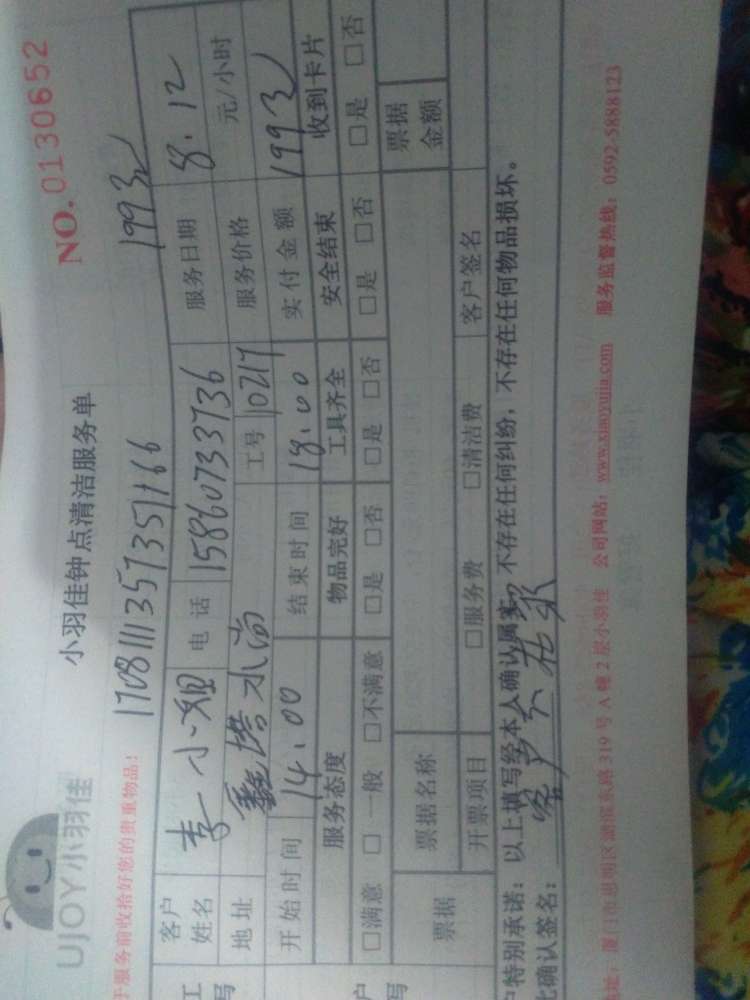 UJOY小羽佳
小羽佳钟点清洁服务单
NO. 0130652
于服务前收拾好您的贵重物品!
170811135735166
1993
客户姓名 李小姐 电话 15860733736 服务日期 8.12
地址 鑫塔水尚 工号 10217 服务价格 元/小时
开始时间 14.00 结束时间 18.00 实付金额 1993
服务态度 物品完好 工具齐全 安全结束 收到卡片
□满意 □一般 □不满意 □是 □否 □是 □否 □是 □否 □是 □否
票据 票据名称 票据金额
开票项目 □服务费 □清洁费 客户签名
户特别承诺:以上填写经本人确认属实,不存在任何纠纷,不存在任何物品损坏。
此确认签名: 客户不在家
地址:厦门市思明区湖滨东路319号A幢2层小羽佳 公司网站:www.xiaoyujia.com 服务监督热线:0592-5888123